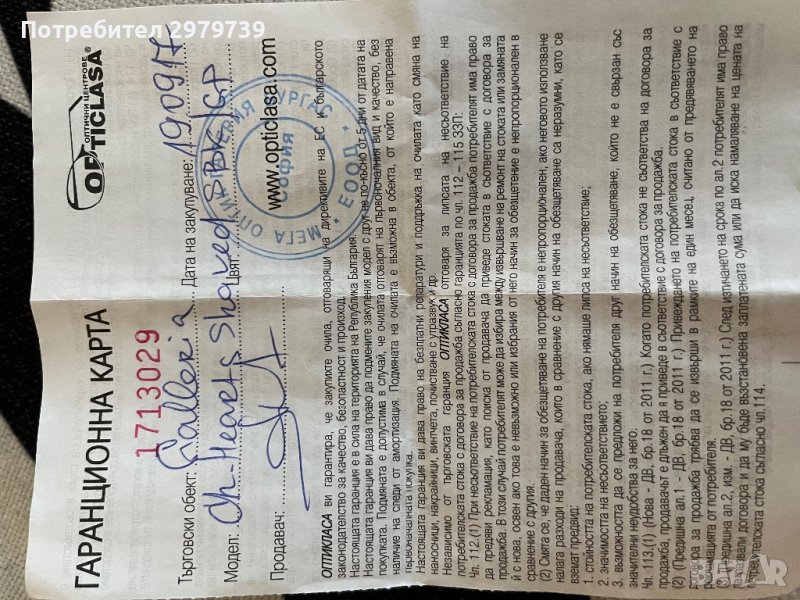 Потребител 2979739
ГАРАНЦИОННА КАРТА
1713029
ОПТИЧНИ ЦЕНТРОВЕ
OPTICLASA®
Търговски обект: Galleria Дата на закупуване: 190917
Модел: Ch-Hearts Shaved Цвят: SBK/GP
Продавач:
www.opticlasa.com
МЕГА ОПТИК БЪЛГАРИЯ БУРГАС ЕООД
София
ОПТИКЛАСА ви гарантира, че закупихте очила, отговарящи на директивите на ЕС и българското
законодателство за качество, безопастност и произход.
Настоящата гаранция е в сила на територията на Република България.
Настоящата гаранция ви дава право да подмените закупения модел с друг не по-късно от 5 дни от датата на
покупката. Подмяната е допустима в случай, че очилата отговарят на първоначалния вид и качество, без
наличие на следи от амортизация. Подмяната на очилата е възможна в обекта, от който е направена
първоначалната покупка.
Настоящата гаранция ви дава право на безплатни репаратури и поддръжка на очилата като смяна на
наносници, накрайници, винтчета, почистване с ултразвук и др.
Независимо от търговската гаранция ОПТИКЛАСА отговаря за липсата на несъответствие на
потребителската стока с договора за продажба съгласно гаранцията по чл. 112 – 115 ЗЗП:
Чл. 112.(1) При несъответствие на потребителската стока с договора за продажба потребителят има право
да предяви рекламация, като поиска от продавача да приведе стоката в съответствие с договора за
продажба. В този случай потребителят може да избира между извършване на ремонт на стоката или замяната
й с нова, освен ако това е невъзможно или избраният от него начин за обезщетение е непропорционален в
сравнение с другия.
(2) Смята се, че даден начин за обезщетяване на потребителя е непропорционален, ако неговото използване
налага разходи на продавача, които в сравнение с другия начин на обезщетяване са неразумни, като се
вземат предвид:
1. стойността на потребителската стока, ако нямаше липса на несъответствие;
2. значимостта на несъответствието;
3. възможността да се предложи на потребителя друг начин на обезщетяване, който не е свързан със
значителни неудобства за него.
Чл. 113.(1) (Нова - ДВ, бр.18 от 2011 г.) Когато потребителската стока не съответства на договора за
продажба, продавачът е длъжен да я приведе в съответствие с договора за продажба.
(2) (Предишна ал.1 - ДВ, бр.18 от 2011 г.) Привеждането на потребителската стока в съответствие с
договора за продажба трябва да се извърши в рамките на един месец, считано от предявяването на
рекламацията от потребителя.
(3) (Предишна ал.2, изм. - ДВ, бр.18 от 2011 г.) След изтичането на срока по ал.2 потребителят има право
да развали договора и да му бъде възстановена заплатената сума или да иска намаляване на цената на
потребителската стока съгласно чл.114.
BAZAR